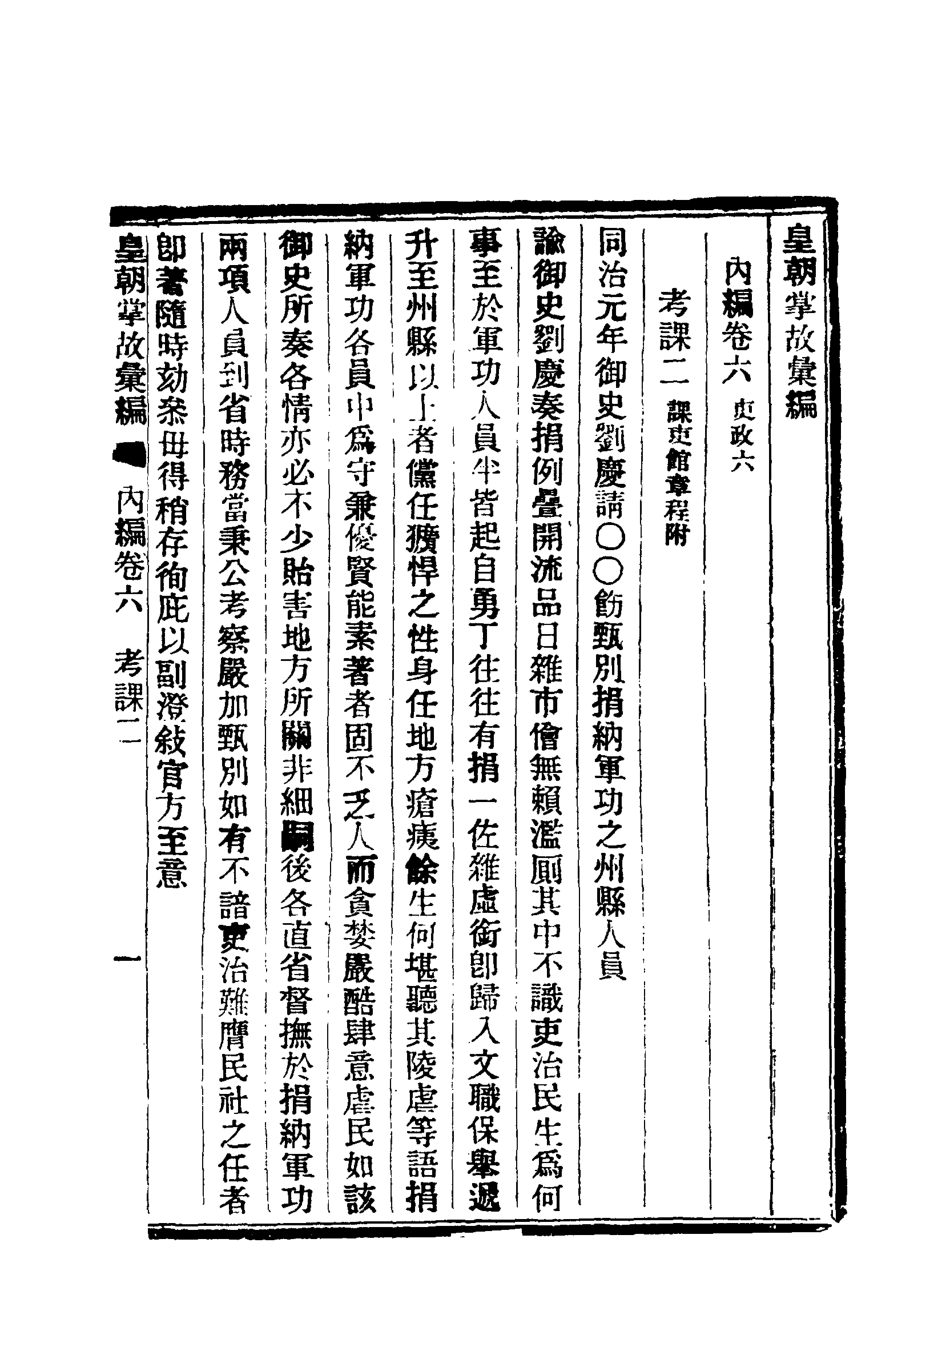 皇朝掌故彙編
內編卷六 吏政六
考課二 課吏館章程附
同治元年御史劉慶請〇〇飭甄別捐納軍功之州縣人員
諭御史劉慶奏捐例疊開流品日雜市儈無賴濫廁其中不識吏治民生爲何
事至於軍功人員半皆起自勇丁往往有捐一佐雜虛銜卽歸入文職保舉遞
升至州縣以上者儻任獷悍之性身任地方瘡痍餘生何堪聽其陵虐等語捐
納軍功各員中爲守兼優賢能素著者固不乏人而貪婪嚴酷肆意虐民如該
御史所奏各情亦必不少貽害地方所關非細嗣後各直省督撫於捐納軍功
兩項人員到省時務當秉公考察嚴加甄別如有不諳吏治難膺民社之任者
卽著隨時劾叅毋得稍存徇庇以副澄敍官方至意
皇朝掌故彙編 內編卷六 考課二 一